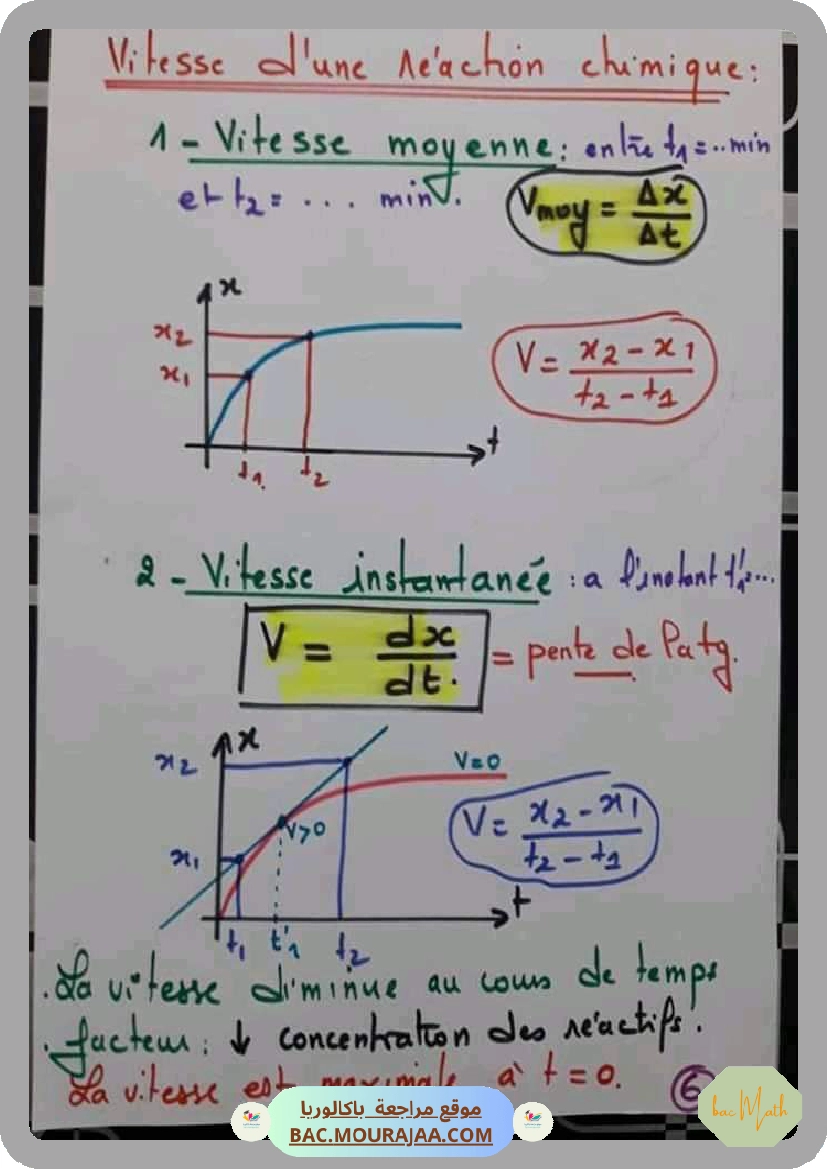 Vitesse d'une réaction chimique:
1 - Vitesse moyenne: entre t1=..min
et t2= ... min.
Vmoy = Δx/Δt
x
x2
x1
t1
t2
t
V = x2 - x1 / t2 - t1
2 - Vitesse instantanée: a l'instant t'1=...
V = dx/dt = pente de la tg.
x
x2
x1
V=0
V>0
t1
t'1
t2
t
V = x2 - x1 / t2 - t1
. La vitesse diminue au cours de temps
. facteur: ↓ concentration des réactifs.
La vitesse est maximale à t = 0.
6
bac Math
موقع مراجعة باكالوريا
BAC.MOURAJAA.COM